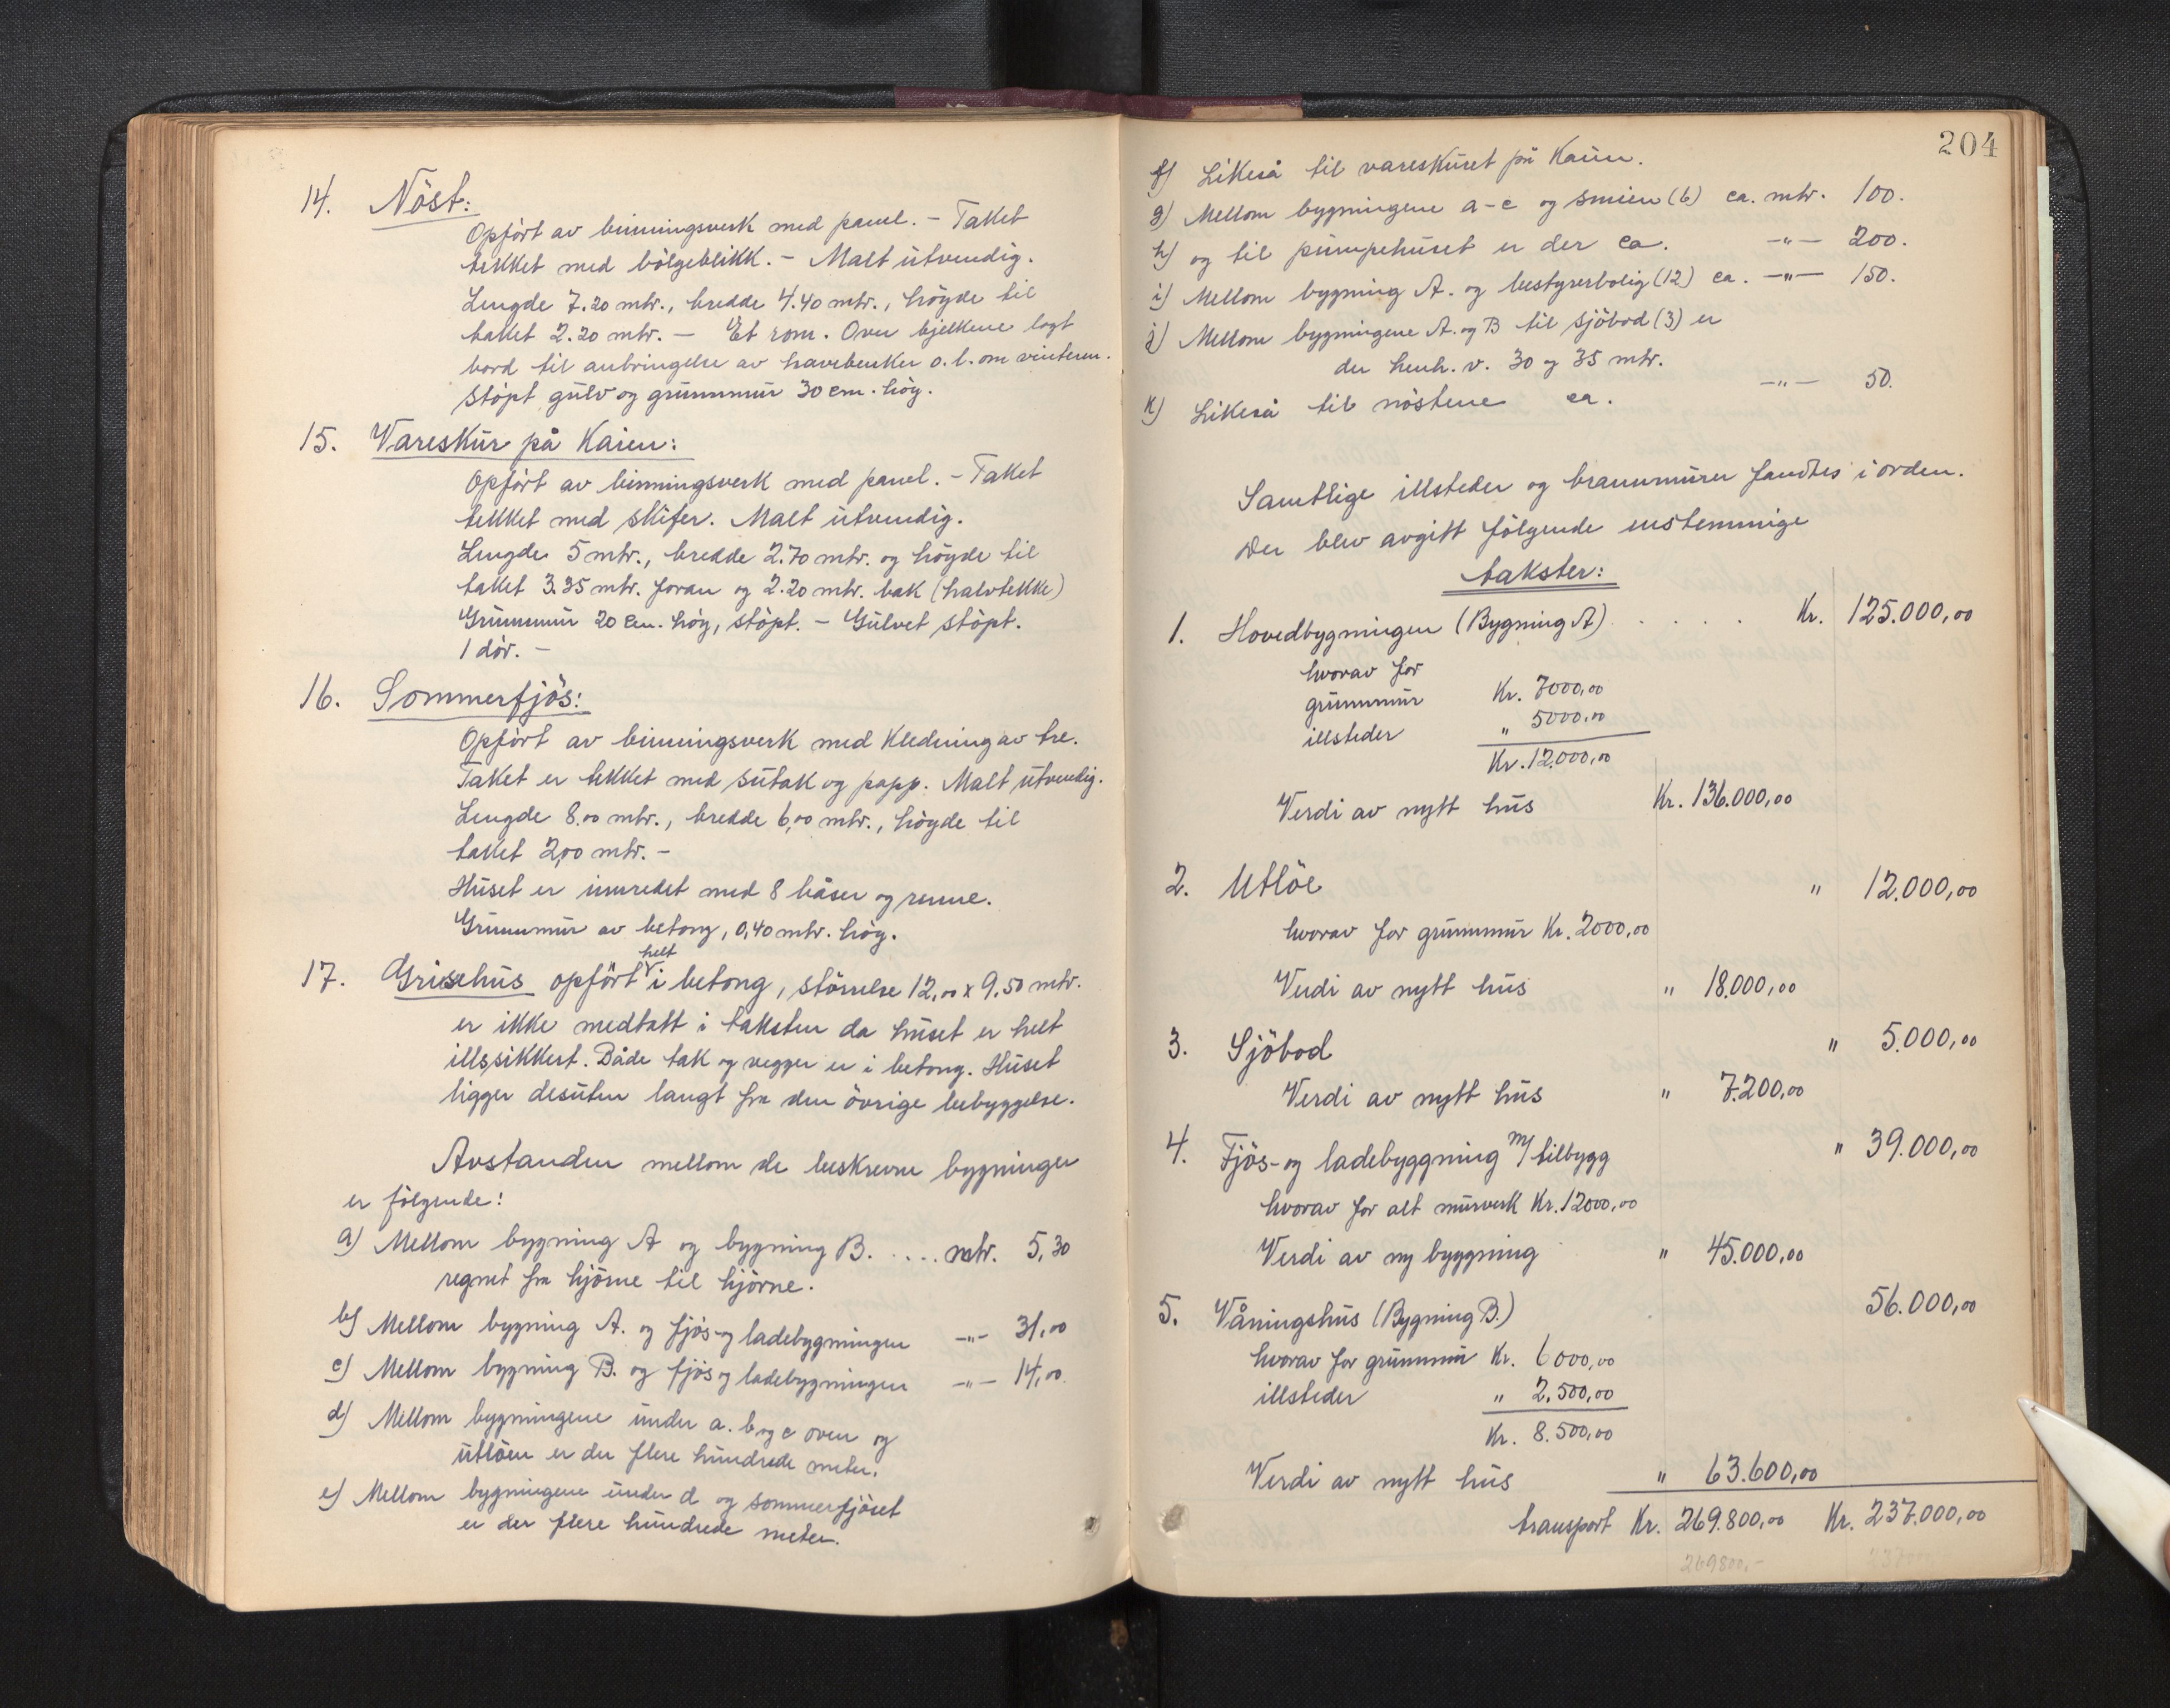 14. Nöst:
Opfört av binningsverk med panel. - Taket
tekket med bölgeblikk. - Malt utvendig.
Lengde 7.20 mtr., bredde 4.40 mtr., höyde til
taket 2.20 mtr. - Et rom. Over bjelkene lagt
bord til anbringelse av havebenker o.l. om vinteren.
Stöpt gulv og grunnmur 30 cm. hög.
15. Vareskur på Kaien:
Opfört av binningsverk med panel. - Taket
tekket med skifer. Malt utvendig.
Lengde 5 mtr., bredde 2.70 mtr. og höyde til
taket 3.35 mtr. foran og 2.20 mtr. bak (halvtekke)
Grunnmur 20 cm. höy, stöpt. - Gulvet stöpt.
1 dör. -
16. Sommerfjös:
Opfört av binningsverk med Kledning av tre.
Taket er tekket med sutak og papp. Malt utvendig.
Lengde 8.00 mtr., bredde 6,00 mtr., höyde til
taket 2,00 mtr. -
Huset er innredet med 8 båser og renne.
Grunnmur av betong, 0,40 mtr. höy.
17. Grisehus opfört helt i betong, störrelse 12,00 x 9,50 mtr.
er ikke medtatt i taksten da huset er helt
illssikkert. Både tak og vegger er i betong. Huset
ligger desuten langt fra den övrige bebyggelse.
Avstanden mellom de beskrevne bygninger
er fölgende:
a) Mellom bygning A og bygning B. .... mtr. 5,30
regnet fra hjörne til hjörne.
b) Mellom bygning A. og fjös og ladebygningen -"- 31,00
c) Mellom bygning B. og fjös og ladebygningen -"- 14,00
d) Mellom bygningene under a. b og c oven og
utlöen er der flere hundrede meter.
e) Mellom bygningene under d og sommerfjöset
er der flere hundrede meter.
204
f) Likeså til vareskuret på Kaien.
g) Mellom bygningene a-c og smien (6) ca. mtr. 100.
h) og til pumpehuset er der ca. -"- 200.
i) Mellom bygning A. og bestyrerbolig (12) ca. -"- 150.
j) Mellom bygningene A. og B til sjöbod (3) er
der henh. v. 30 og 35 mtr.
k) Likeså til nöstene ca. -"- 50.
Samtlige illsteder og brannmurer fandtes i orden.
Der blev avgitt fölgende enstemmige
takster:
1. Hovedbygningen (Bygning A) . . . . . Kr. 125.000,00
hvorav for
grunnmur Kr. 7000,00
illsteder " 5000,00
Kr. 12.000,00
Verdi av nytt hus Kr. 136.000,00
2. Utlöe " 12.000,00
hvorav for grunnmur Kr. 2000,00
Verdi av nytt hus " 18.000,00
3. Sjöbod " 5.000,00
Verdi av nytt hus " 7.200,00
4. Fjös- og ladebyggning m/ tilbygg " 39.000,00
hvorav for alt murverk Kr. 12000,00
Verdi av ny byggning " 45.000,00
5. Våningshus (Bygning B.) 56.000,00
hvorav for grunnmur Kr. 6000,00
illsteder " 2.500,00
Kr. 8.500,00
Verdi av nytt hus " 63.600,00
transport Kr. 269.800,00 Kr. 237.000,00
269800,-